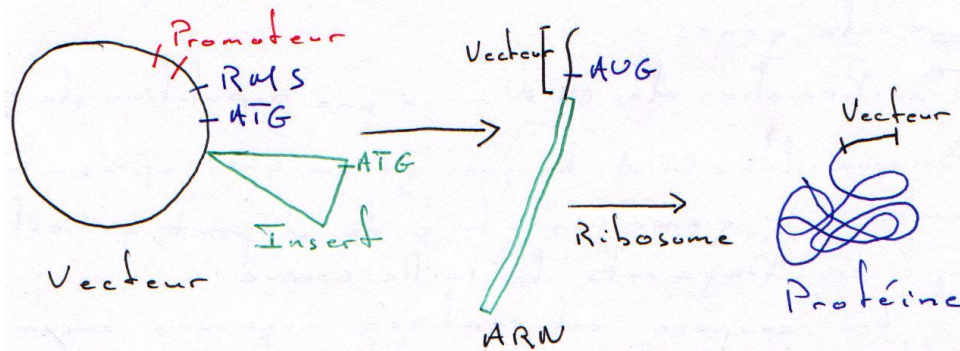 Promoteur
RMS
ATG
ATG
Insert
Vecteur
Vecteur
AUG
ARN
Ribosome
Vecteur
Protéine